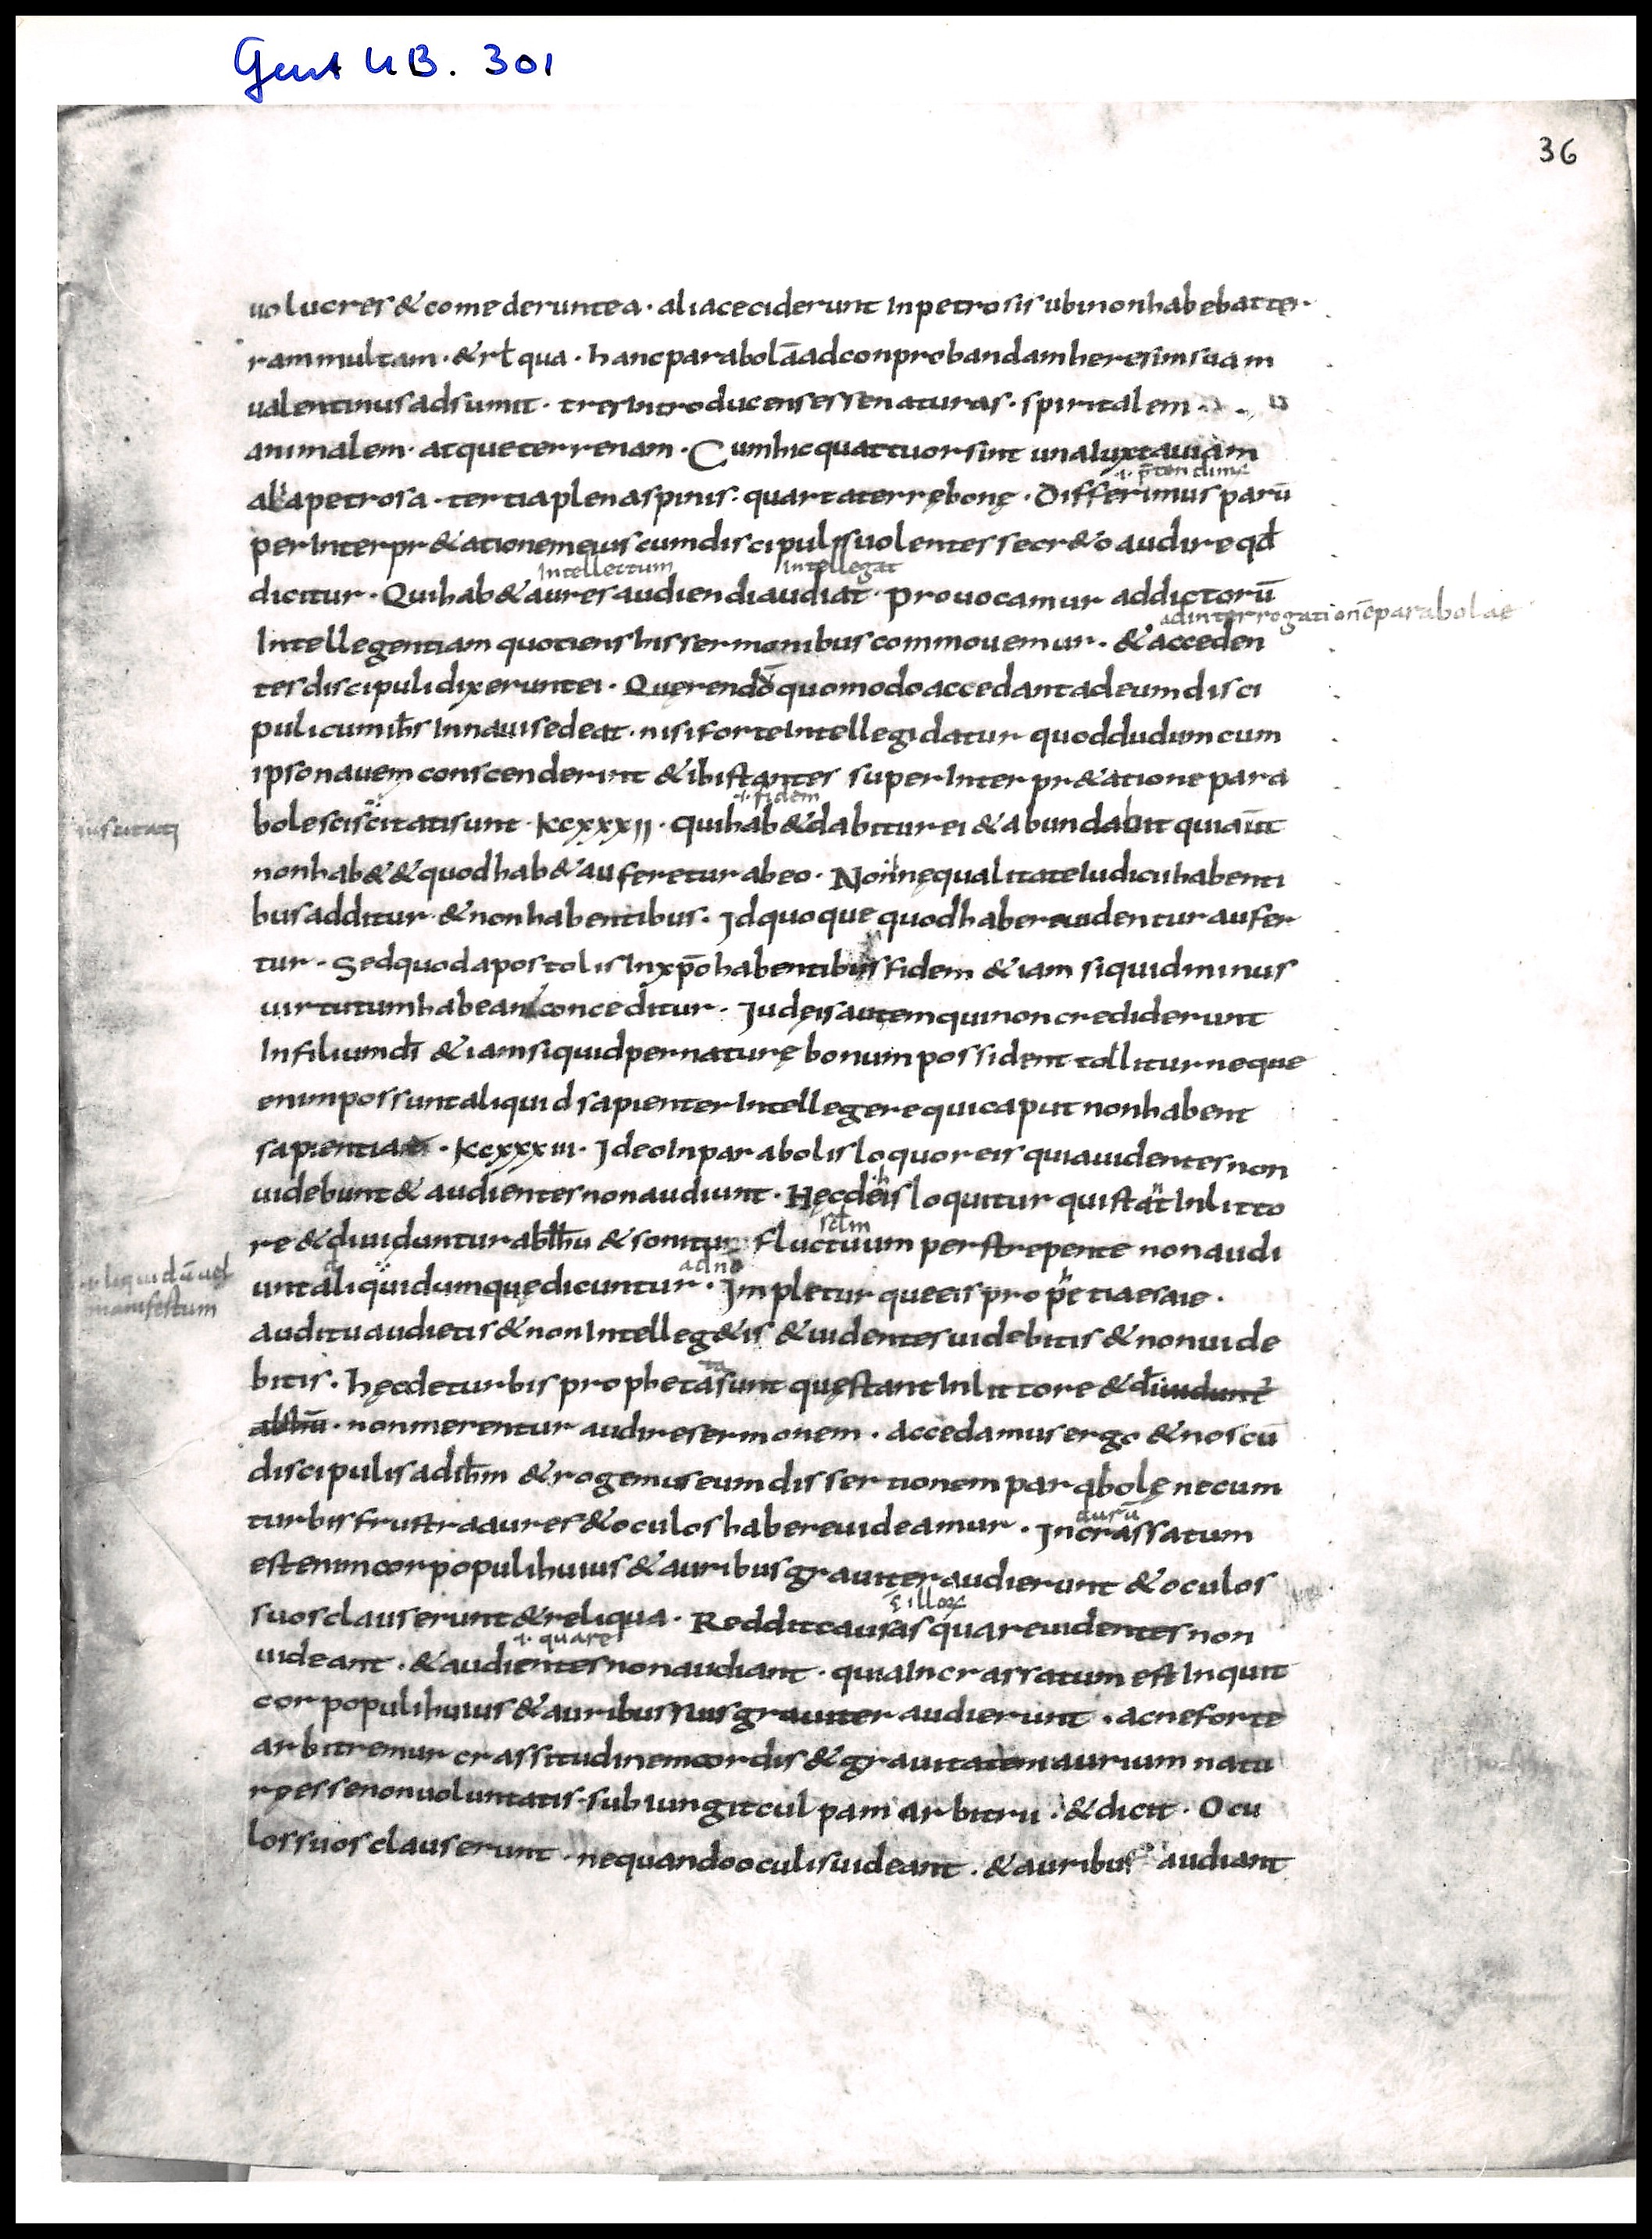 Gent UB. 301
36
uolucres & comederunt ea · alia ceciderunt In petrosis ubi non habebat ter-
ram multam · & rł qua · hanc parabolā ad conprobandam heresim suam
ualentinus adsumit · tres Introducens esse naturas · spiritalem ·
animalem · atque terrenam · Cum hic quattuor sint una Iuxta uiam
·i· p̄tendim
alia petrosa · tertia plena spinis · quarta terrę bonę · Differimus parū
per Interpr&ationem eius cum discipulis uolentes secr&o audire qđ
Intellectum Intellegat
dicitur · Qui hab& aures audiendi audiat · prouocamur ad dictorū
ad interrogationē parabolae
Intellegentiam quotiens his sermonibus commouemur · & acceden
tes discipuli dixerunt ei · Quęrendō quomodo accedant ad eum disci
puli cum ih̄s In naui sedeat · nisi forte Intellegi datur quod dudum cum
ipso nauem conscenderint & ibi stantes super Inter pr&atione para
·i· fidem
bole sciscitati sunt · kcxxxii · qui hab& dabitur ei & abundabit qui aūt
non hab& & quod hab& auferetur ab eo · Non inęqualitate Iudicii habenti
bus additur & non habentibus · Id quoque quod habere uidentur aufer
tur · Sed quod apostolis In xp̄o habentibus fidem & iam si quid minus
uirtutum habeant conceditur · Iudęis autem qui non crediderunt
In filium dī & iam si quid per naturę bonum possident tollitur neque
enim possunt aliquid sapienter Intellegere qui caput non habent
sapientiae · kcxxxiii · Ideo In parabolis loquor eis quia uidentes non
uidebunt & audientes non audiunt · Hęc de his loquitur qui stant In litto
sclm
re & diuiduntur ab ih̄u & sonitu fluctuum perstrepente non audi
ad nō
·i· liquidū uel
manifestum
unt aliquidum quę dicuntur · Impletur que eis prophetia esaie ·
auditu audietis & non Intelleg&is & uidentes uidebitis & non uide
bitis · hęc de turbis prophetata sunt quę stant In littore & diuidunt
ab ih̄u · non merentur audire sermonem · accedamus ergo & nos cū
discipulis ad ih̄m & rogemus eum dissertionem parabolę ne cum
durū
turbis frustra aures & oculos habere uideamur · Incrassatum
est enim cor populi huius & auribus grauiter audierunt & oculos
suos clauserunt & reliqua · Reddit causas quare uidentes non
·i· quare
uideant · & audientes non audiant · quia Incrassatum est Inquit
cor populi huius & auribus suis grauiter audierunt · ac ne forte
arbitremur crassitudinem cordis & grauitatem aurium natu
rę esse non uoluntatis · subiungit culpam arbitrii · & dicit · Ocu
los suos clauserunt · ne quando oculis uideant · & auribus audiant